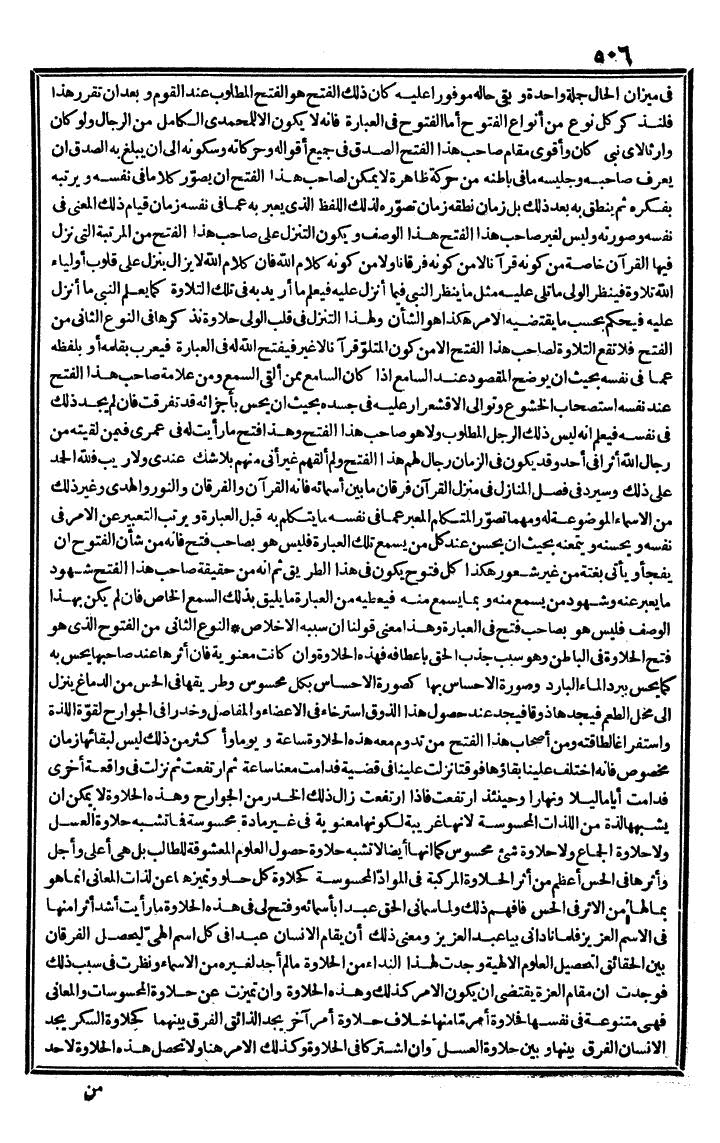 ٥٠٦
فى ميزان الحال جملة واحدة و بقى حاله موفورا عليه كان ذلك الفتح هو الفتح المطلوب عند القوم و بعد ان تقرر هذا
فلنذكر كل نوع من أنواع الفتوح أما الفتوح فى العبارة فانه لا يكون الا للمحمدى الكامل من الرجال ولو كان
وارثا لاى نبى كان وأقوى مقام صاحب هذا الفتح الصدق فى جميع أقواله وحركاته وسكونه الى ان يبلغ به الصدق ان
يعرف صاحبه وجليسه ما فى باطنه من حركة ظاهرة لا يمكن لصاحب هذا الفتح ان يصوّر كلاما فى نفسه و يرتبه
بفكره ثم ينطق به بعد ذلك بل زمان نطقه زمان تصوّره لذلك اللفظ الذى يعبر به عما فى نفسه زمان قيام ذلك المعنى فى
نفسه وصورته وليس لغير صاحب هذا الفتح هذا الوصف و يكون التنزل على صاحب هذا الفتح من المرتبة التى نزل
فيها القرآن خاصة من كونه قرآنا لا من كونه فرقانا ولا من كونه كلام الله فان كلام الله لا يزال ينزل على قلوب أولياء
الله تلاوة فينظر الولى ما تلى عليه مثل ما ينظر النبى فيما أنزل عليه فيعلم ما أريد به فى تلك التلاوة كما يعلم النبى ما أنزل
عليه فيحكم بحسب ما يقتضيه الامر هكذا هو الشأن ولهذا التنزل فى قلب الولى حلاوة نذكرها فى النوع الثانى من
الفتح فلا تقع التلاوة لصاحب هذا الفتح الا من كون المتلوّ قرآنا لا غير فيفتح الله له فى العبارة فيعرب بقلمه أو بلفظه
عما فى نفسه بحيث ان يوضح المقصود عند السامع اذا كان السامع ممن ألقى السمع ومن علامة صاحب هذا الفتح
عند نفسه استصحاب الخشوع وتوالى الاقشعرار عليه فى جسده بحيث ان يحس بأجزائه قد تفرقت فان لم يجد ذلك
فى نفسه فيعلم انه ليس ذلك الرجل المطلوب ولا هو صاحب هذا الفتح وهذا فتح ما رأيت له فى عمرى فيمن لقيته من
رجال الله أثرا فى أحد وقد يكون فى الزمان رجال لهم هذا الفتح ولم ألقهم غير أنى منهم بلا شك عندى ولا ريب فلله الحمد
على ذلك وسيرد فى فصل المنازل فى منزل القرآن فرقان ما بين أسمائه فانه القرآن والفرقان والنور والهدى وغير ذلك
من الاسماء الموضوعة له ومهما تصوّر المتكلم المعبر عما فى نفسه ما يتكلم به قبل العبارة و يرتب التعبير عن الامر فى
نفسه و يحسنه و يتمعنه بحيث ان يحسن عند كل من يسمع تلك العبارة فليس هو بصاحب فتح فانه من شأن الفتوح ان
يفجأ و يأتى بغتة من غير شعور هكذا كل فتوح يكون فى هذا الطريق ثم انه من حقيقة صاحب هذا الفتح شهود
ما يعبر عنه وشهود من يسمع منه و بما يسمع منه فيعطيه من العبارة ما يليق بذلك السمع الخاص فان لم يكن بهذا
الوصف فليس هو بصاحب فتح فى العبارة وهذا معنى قولنا ان سببه الاخلاص * النوع الثانى من الفتوح الذى هو
فتح الحلاوة فى الباطن وهو سبب جذب الحق باعطافه فهذه الحلاوة وان كانت معنوية فان أثرها عند صاحبها يحس به
كما يحس ببرد الماء البارد وصورة الاحساس بها كصورة الاحساس بكل محسوس وطريقها فى الحس من الدماغ ينزل
الى محل الطعم فيجدها ذوقا فيجد عند حصول هذا الذوق استرخاء فى الاعضاء والمفاصل وخدرا فى الجوارح لقوّة اللذة
واستفراغا لطاقته ومن أصحاب هذا الفتح من تدوم معه هذه الحلاوة ساعة و يوما وأكثر من ذلك ليس لبقائها زمان
مخصوص فانه اختلف علينا بقاؤها فوقتا نزلت علينا فى قضية فدامت معنا ساعة ثم ارتفعت ثم نزلت فى واقعة أخرى
فدامت أياما ليلا ونهارا وحينئذ ارتفعت فاذا ارتفعت زال ذلك الخدر من الجوارح وهذه الحلاوة لا يمكن ان
يشبهها لذة من اللذات المحسوسة لانها غريبة لكونها معنوية فى غير مادة محسوسة فما تشبه حلاوة العسل
ولا حلاوة الجماع ولا حلاوة شئ محسوس كما انها أيضا لا تشبه حلاوة حصول العلوم المعشوقة للطالب بل هى أعلى وأجل
وأثرها فى الحس أعظم من أثر الحلاوة المركبة فى الموادّ المحسوسة كحلاوة كل حلو وتميزها عن لذات المعانى انما هو
بما لها من الاثر فى الحس فافهم ذلك ولما سمانى الحق عبدا بأسمائه وفتح لى فى هذه الحلاوة ما رأيت أشد أثرا منها
فى الاسم العزيز فلما نادانى بيا عبد العزيز ومعنى ذلك أن يقام الانسان عبدا فى كل اسم الهىّ ليحصل الفرقان
بين الحقائق لتحصيل العلوم الالهية وجدت لهذا النداء من الحلاوة ما لم أجد لغيره من الاسماء ونظرت فى سبب ذلك
فوجدت ان مقام العزة يقتضى ان يكون الامر كذلك وهذه الحلاوة وان تميزت عن حلاوة المحسوسات والمعانى
فهى متنوعة فى نفسها فحلاوة أمر مّا منها خلاف حلاوة أمر آخر يجد الذائق الفرق بينهما كحلاوة السكر يجد
الانسان الفرق بينها و بين حلاوة العسل وان اشتركا فى الحلاوة وكذلك الامر هنا ولا تحصل هذه الحلاوة لاحد
من